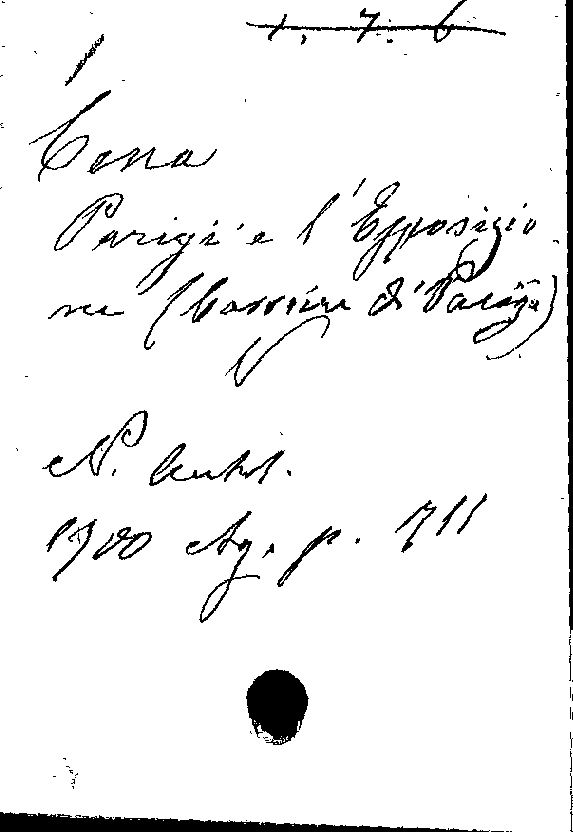 1. 7. 6
Cena
Parigi e l'Esposizio
ne (Corriere di Parigi)
V
N. Antol.
1900 Ag. p. 711